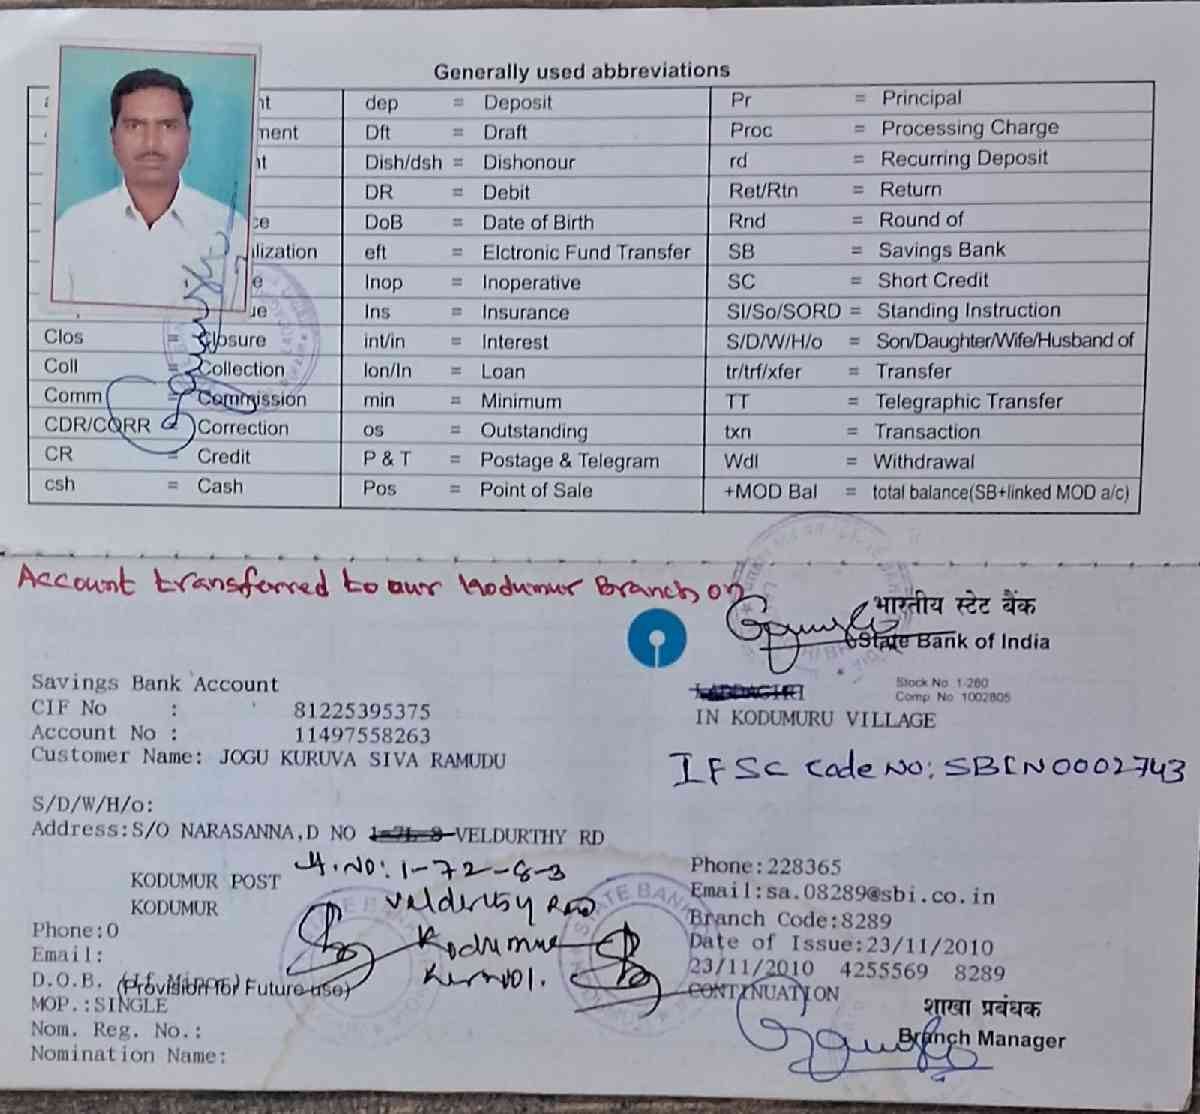 Generally used abbreviations
nt dep = Deposit Pr = Principal
ment Dft = Draft Proc = Processing Charge
nt Dish/dsh = Dishonour rd = Recurring Deposit
DR = Debit Ret/Rtn = Return
ce DoB = Date of Birth Rnd = Round of
lization eft = Elctronic Fund Transfer SB = Savings Bank
e Inop = Inoperative SC = Short Credit
ue Ins = Insurance SI/So/SORD = Standing Instruction
Clos = Closure int/in = Interest S/D/W/H/o = Son/Daughter/Wife/Husband of
Coll = Collection lon/ln = Loan tr/trf/xfer = Transfer
Comm = Commission min = Minimum TT = Telegraphic Transfer
CDR/CORR = Correction os = Outstanding txn = Transaction
CR = Credit P & T = Postage & Telegram Wdl = Withdrawal
csh = Cash Pos = Point of Sale +MOD Bal = total balance(SB+linked MOD a/c)
Account transferred to our Kodumur Branch on
भारतीय स्टेट बैंक
State Bank of India
Stock No. 1-260
Comp. No. 1002805
LADDAGIRI
IN KODUMURU VILLAGE
IFSC Code NO: SBIN0002743
Savings Bank Account
CIF No : 81225395375
Account No : 11497558263
Customer Name: JOGU KURUVA SIVA RAMUDU
S/D/W/H/o:
Address:S/O NARASANNA,D NO VELDURTHY RD
H.NO: 1-72-8-3
KODUMUR POST
Veldurthy Road
KODUMUR
Kodumur
Kurnool.
Phone:0
Email:
D.O.B. (If Minor):
(Provision for Future use)
MOP.:SINGLE
Nom. Reg. No.:
Nomination Name:
Phone:228365
Email:sa.08289@sbi.co.in
Branch Code:8289
Date of Issue:23/11/2010
23/11/2010 4255569 8289
CONTINUATION
शाखा प्रबंधक
Branch Manager